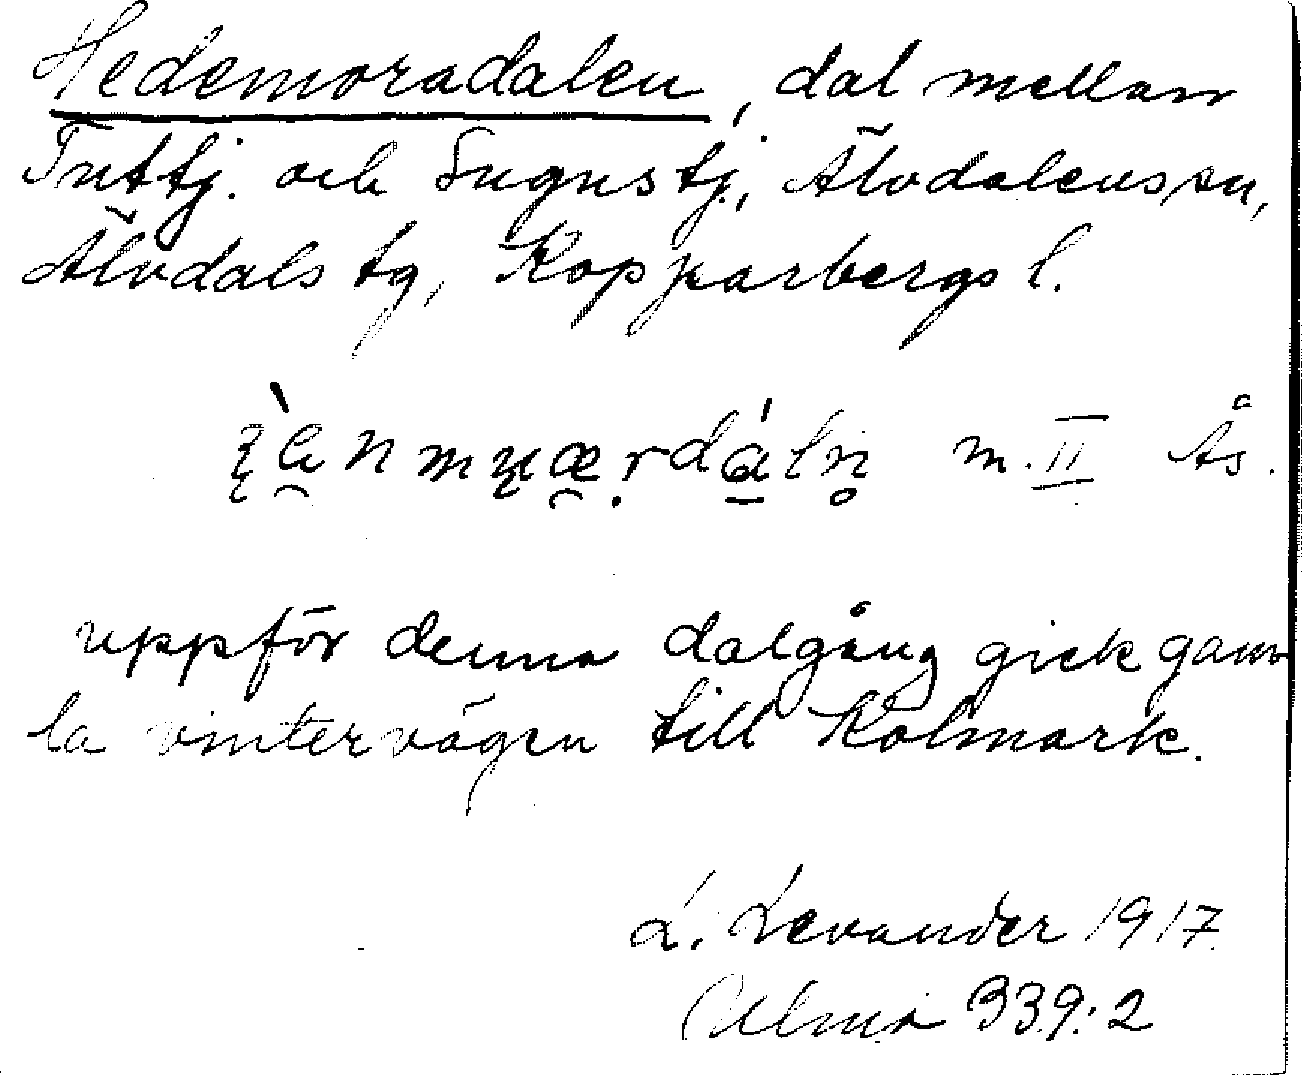 Hedemoradalen, dal mellan
Tuttj. och Sugnstj., Älvdalens sn,
Älvdals tg, Kopparbergs l.
m. II Ås.
uppför denna dalgång gick gam
la vintervägen till Kolmark.
L. Levander 1917.
Ulma 339:2